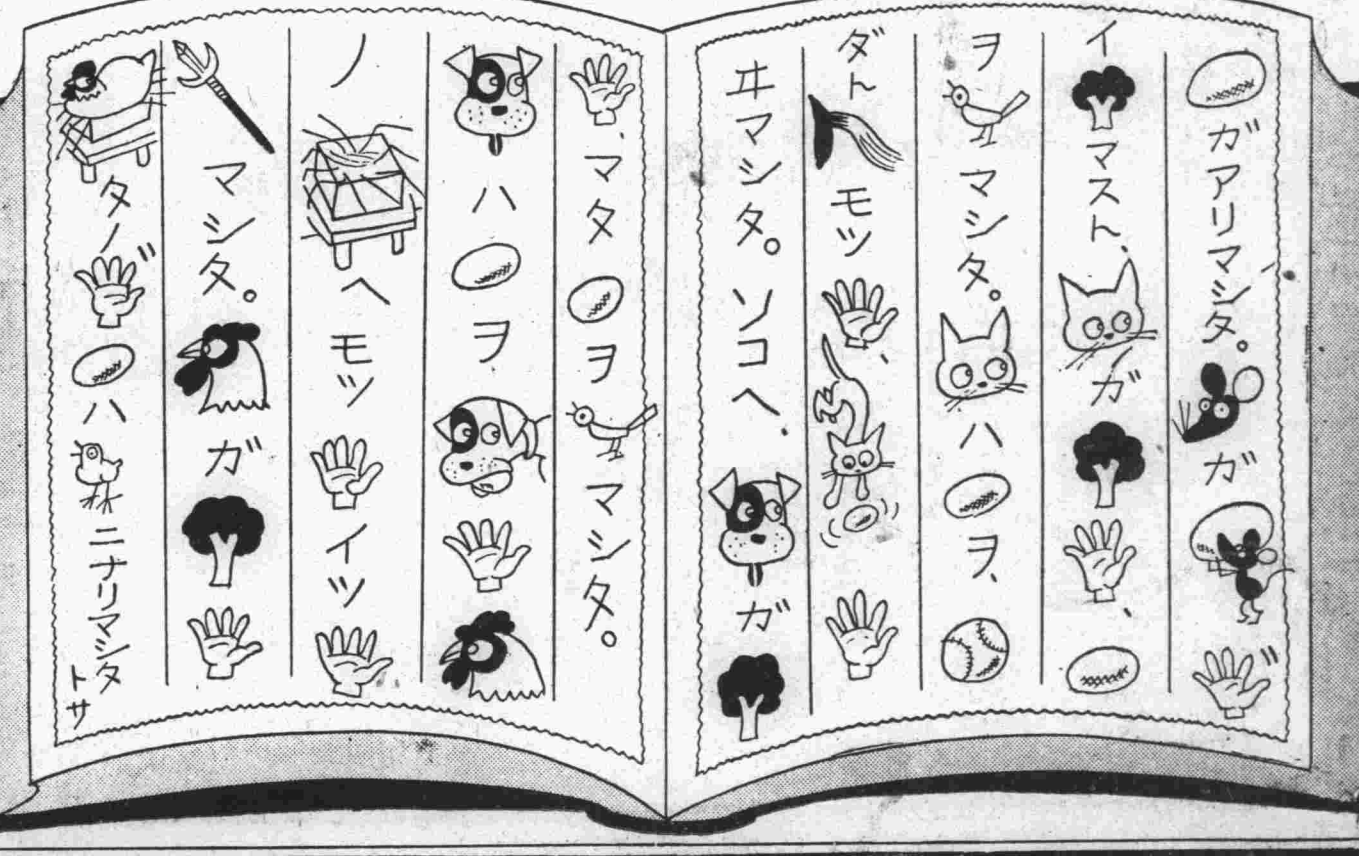 ガアリマシタ。ガ゛
イマスト、ガ、
ヲマシタ。ハヲ、
ダトモツ、
ヰマシタ。ソコヘ、ガ
、マタヲマシタ。
ハヲ
ノヘモツイツ
マシタ。ガ
タノ゛ハニナリマシタ
トサ